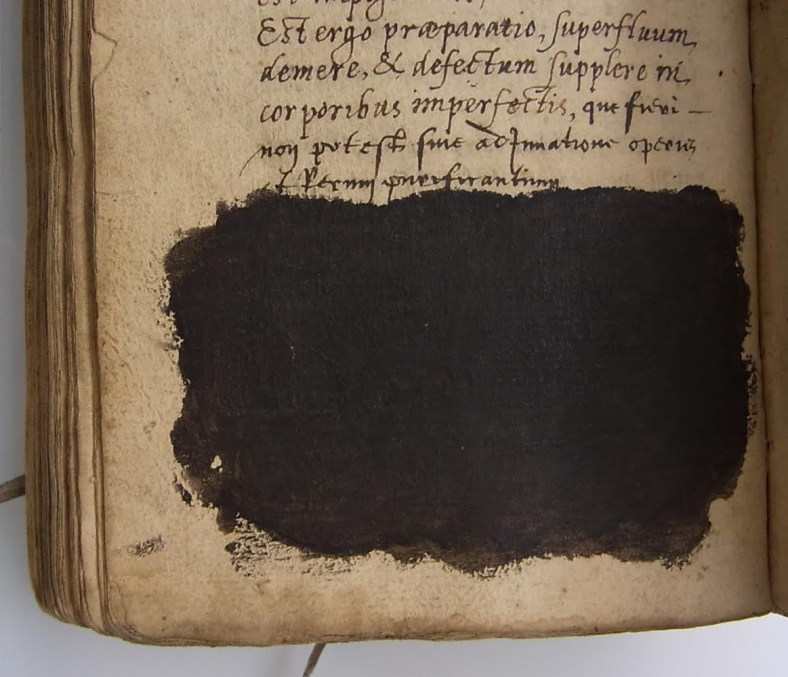 Est ergo præparatio, superfluum
demere, & defectum supplere in
corporibus imperfectis, que fieri —
non potest sine
et rerum purificantium